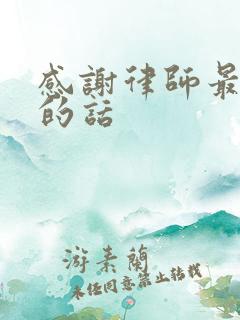 感謝律師最
的話
游素蘭
未經同意禁止轉載